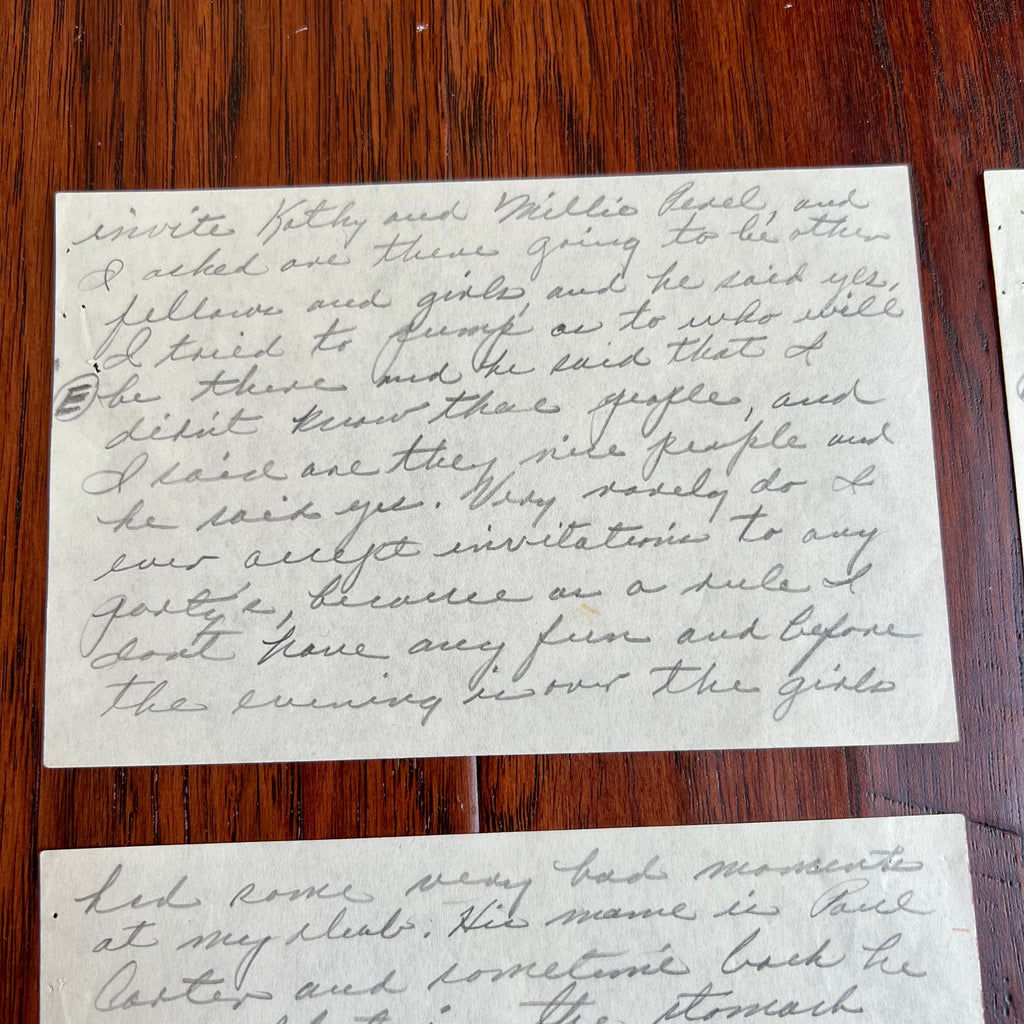 invite Kathy and Millie Perel, and
I asked are there going to be other
fellows and girls, and he said yes.
I tried to pump as to who will
be there and he said that I
E
didn't know thae people, and
I said are they nice people and
he said yes. Very rarely do I
ever accept invitations to any
party's, because as a rule I
dont have any fun and before
the evening is over the girls
had some very bad moments
at my club. His name is Paul
Carter and sometime back he
the stomach